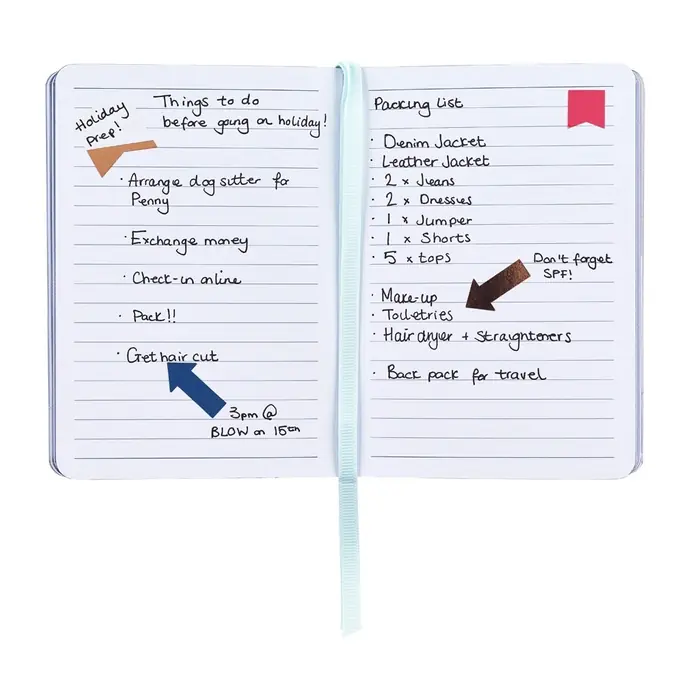 Holiday
prep!
Things to do
before going on holiday!
· Arrange dog sitter for
Penny
· Exchange money
· Check-in online
· Pack!!
· Get hair cut
3pm @
BLOW on 15th
Packing List
· Denim Jacket
· Leather Jacket
· 2 x Jeans
· 2 x Dresses
· 1 x Jumper
· 1 x Shorts
· 5 x tops
Don't forget
SPF!
· Make-up
· Toiletries
· Hairdryer + Straighteners
· Back pack for travel